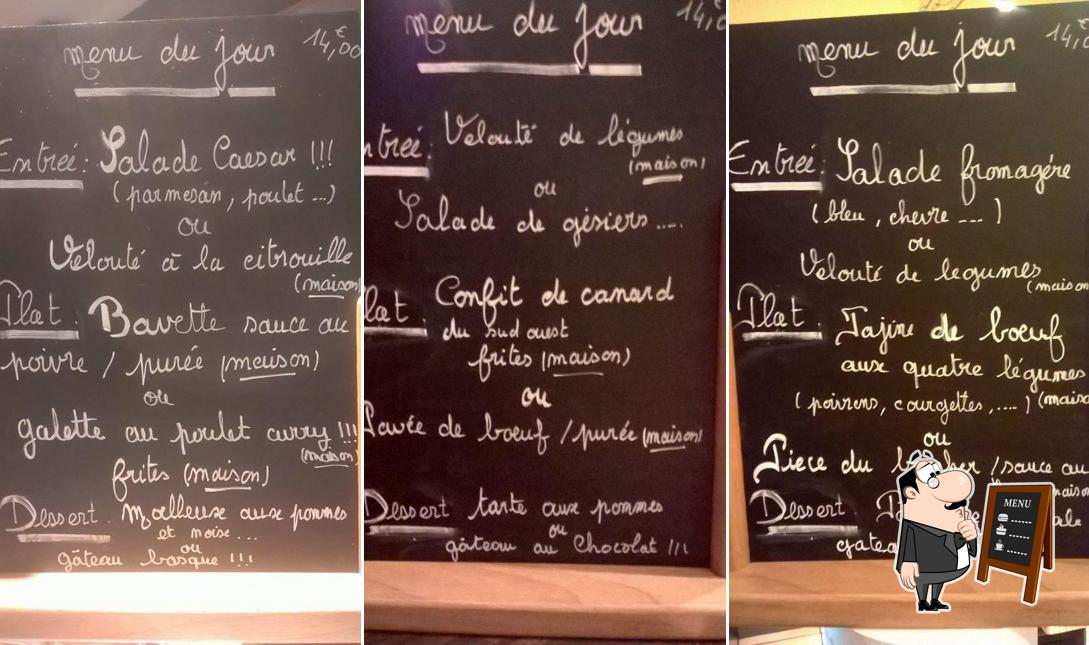 menu du jour 14,00€
Entreé: Salade Caesar !!!
( parmesan, poulet ...)
ou
Velouté à la citrouille
(maison)
Plat : Bavette sauce au
poivre / purée (maison)
ou
galette au poulet curry !!!
(maison)
frites (maison)
Dessert. Moelleux aux pommes
et noix ...
ou
gâteau basque !!!
menu du jour
ntreé: Velouté de légumes
(maison)
ou
Salade de gésiers ....
lat : Confit de canard
du sud ouest
frites (maison)
ou
Pavée de boeuf / purée (maison)
Dessert tarte aux pommes
ou
gâteau au Chocolat !!!
menu du jour
Entreé: Salade fromagére
( bleu, chevre ... )
ou
Velouté de legumes
(maison
Plat : Tajine de boeuf
aux quatre légumes
( poivrons, courgettes, .... ) (maiso
ou
Piece du / sauce au
Dessert
MENU